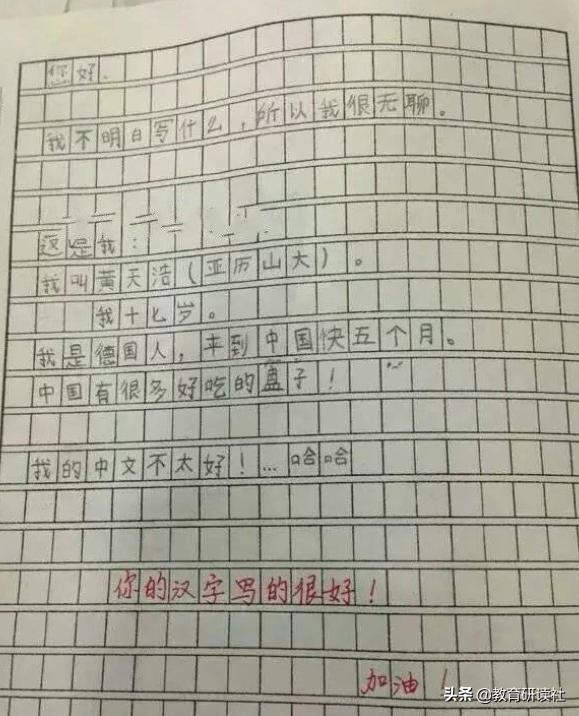 您好.
我不明白写什么，所以我很无聊。
这是我：
我叫黄天浩（亚历山大）。
我十七岁。
我是德国人，来到中国快五个月。
中国有很多好吃的盒子！
我的中文不太好！…哈哈
你的汉字写的很好！
加油！
头条 @教育研读社